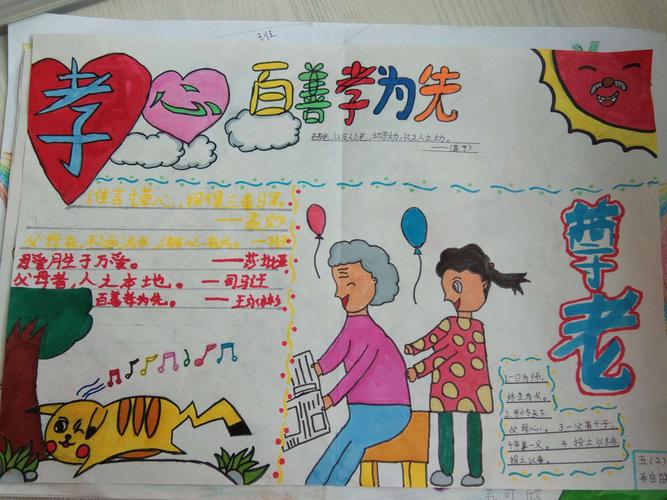 孝
心
百善孝为先
老吾老，以及人之老，幼吾幼，以及人之幼。
——（孟子）
谁言寸草心，报得三春晖。
——孟郊
父母在，不远游，游必有方。
——莎士比亚
父母者，人之本也。——司马迁
百善孝为先。——王永彬
尊老
1.一日为师，
终生为父。
2.可怜天下
父母心。3.一父养十子，
十子养一父。4.投之以木桃
报之以
五（2）